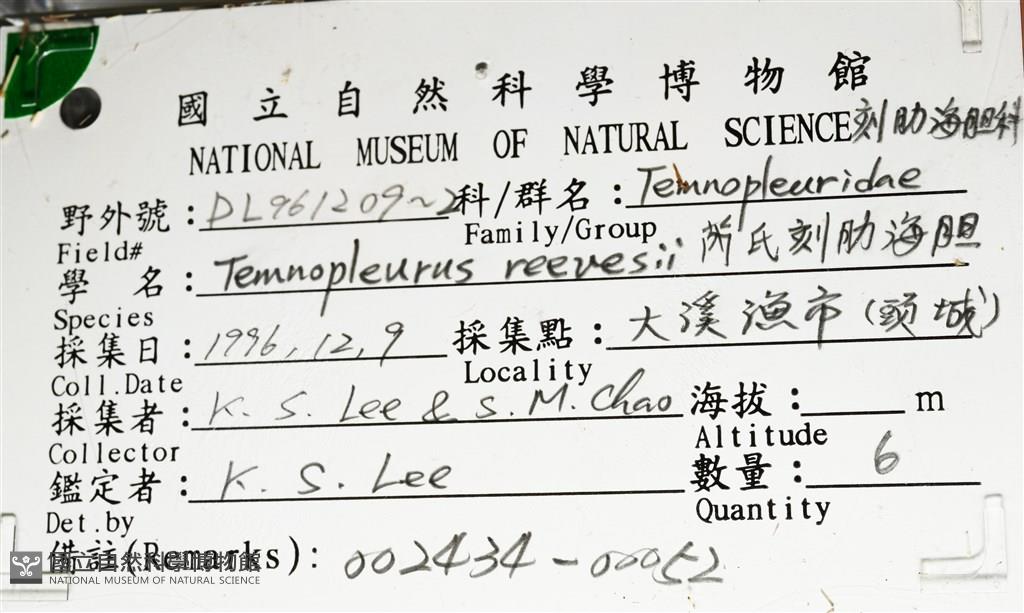 國立自然科學博物館
NATIONAL MUSEUM OF NATURAL SCIENCE 刻肋海胆科
野外號：DL961209~2 科/群名：Temnopleuridae
Field# Family/Group
學 名：Temnopleurus reevesii 芮氏刻肋海胆
Species
採集日：1996,12,9 採集點：大溪漁市(頭城)
Coll.Date Locality
採集者：K. S. Lee & S. M. Chao 海拔：m
Collector Altitude
鑑定者：K. S. Lee 數量：6
Det.by Quantity
備註(Remarks)：002434-00052
國立自然科學博物館
NATIONAL MUSEUM OF NATURAL SCIENCE